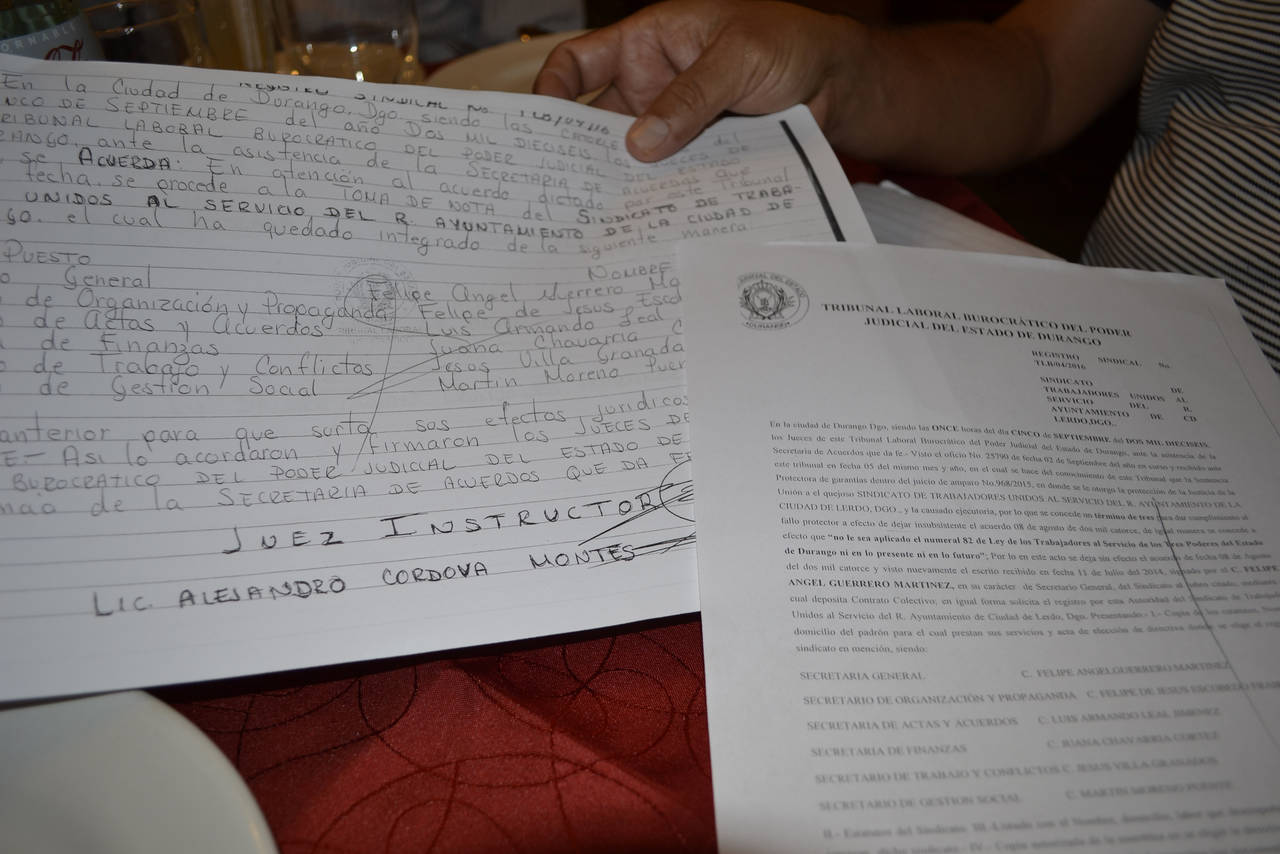 SINDICAL No.
En la Ciudad de Durango, Dgo. siendo las CATORCE
NCO DE SEPTIEMBRE del año DOS MIL DIECISEIS, los JUECES DEL
RIBUNAL LABORAL BUROCRATICO DEL PODER JUDICIAL DEL ESTADO DE
RANGO, ante la asistencia de la SECRETARIA DE ACUERDOS que
se ACUERDA: En atención al acuerdo dictado por este Tribunal
fecha, se procede a la TOMA DE NOTA del SINDICATO DE TRABA-
UNIDOS AL SERVICIO DEL R. AYUNTAMIENTO DE LA CIUDAD DE
GO. el cual ha quedado integrado de la siguiente manera:
PUESTO NOMBRE
o General Felipe Angel Guerrero Ma
o de Organización y Propaganda Felipe de Jesus Esco
o de Actas y Acuerdos Luis Armando Leal
a de Finanzas Juana Chavarria C
o de Trabajo y Conflictos Jesus Villa Granada
o de Gestion Social Martin Moreno Puen
anterior para que surta sus efectos juridicos
E- Asi lo acordaron y firmaron los JUECES DE
BUROCRATICO DEL PODER JUDICIAL DEL ESTADO DE
de la SECRETARIA DE ACUERDOS QUE DA FE
JUEZ INSTRUCTOR
LIC. ALEJANDRO CORDOVA MONTES
TRIBUNAL LABORAL BUROCRÁTICO DEL PODER
JUDICIAL DEL ESTADO DE DURANGO
REGISTRO SINDICAL No.
TLB/04/2016
SINDICATO DE
TRABAJADORES UNIDOS AL
SERVICIO DEL R.
AYUNTAMIENTO DE CD
LERDO,DGO..
En la ciudad de Durango Dgo, siendo las ONCE horas del día CINCO de SEPTIEMBRE del DOS MIL DIECISEIS,
los Jueces de este Tribunal Laboral Burocrático del Poder Judicial del Estado de Durango, ante la asistencia de la
Secretaria de Acuerdos que da fe.- Visto el oficio No. 25790 de fecha 02 de Septiembre del año en curso y recibido ante
este tribunal en fecha 05 del mismo mes y año, en el cual se hace del conocimiento de este Tribunal que la Sentencia
Protectora de garantías dentro del juicio de amparo No.968/2015, en donde se le otorgo la protección de la Justicia de la
Unión a el quejoso SINDICATO DE TRABAJADORES UNIDOS AL SERVICIO DEL R. AYUNTAMIENTO DE LA
CIUDAD DE LERDO, DGO., y la causado ejecutoria, por lo que se concede un término de tres para dar cumplimiento al
fallo protector a efecto de dejar insubsistente el acuerdo 08 de agosto de dos mil catorce, de igual manera se concede a
efecto que "no le sea aplicado el numeral 82 de Ley de los Trabajadores al Servicio de los Tres Poderes del Estado
de Durango ni en lo presente ni en lo futuro"; Por lo en este acto se deja sin efecto el acuerdo de fecha 08 de Agosto
del dos mil catorce y visto nuevamente el escrito recibido en fecha 11 de Julio del 2014, signado por el C. FELIPE
ANGEL GUERRERO MARTINEZ, en su carácter de Secretario General, del Sindicato al rubro citado, mediante
cual deposita Contrato Colectivo; en igual forma solicita el registro por esta Autoridad del Sindicato de Trabajad
Unidos al Servicio del R. Ayuntamiento de Ciudad de Lerdo, Dgo. Presentando.- I.- Copia de los estatutos,
domicilio del padrón para el cual prestan sus servicios y acta de elección de directiva donde se elige el
sindicato en mención, siendo:
SECRETARIA GENERAL C. FELIPE ANGELGUERRERO MARTINEZ
SECRETARIO DE ORGANIZACIÓN Y PROPAGANDA C. FELIPE DE JESUS ESCOBEDO
SECRETARIA DE ACTAS Y ACUERDOS C. LUIS ARMANDO LEAL JIMENEZ
SECRETARIA DE FINANZAS C. JUANA CHAVARRIA CORTEZ
SECRETARIO DE TRABAJO Y CONFLICTOS C. JESUS VILLA GRANADOS
SECRETARIO DE GESTION SOCIAL C. MARTIN MORENO PUENTE
II.- Estatutos del Sindicato. III.-Listado con el Nombre, domicilio, labor que